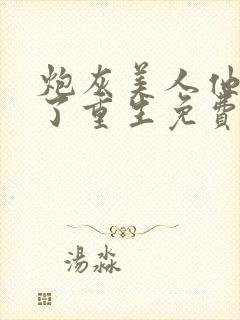 炮灰美人他
了重生免费
汤淼